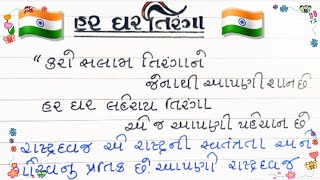 હર ઘર તિરંગા
“ કરો સલામ તિરંગાને
જેનાથી આપણી શાન છે
હર ઘર લહેરાય તિરંગા
એ જ આપણી પહેચાન છે
રાષ્ટ્રધ્વજ એ રાષ્ટ્રની સ્વતંત્રતા અને
ગૌરવનુ પ્રતિક છે. આપણી રાષ્ટ્રધ્વજ